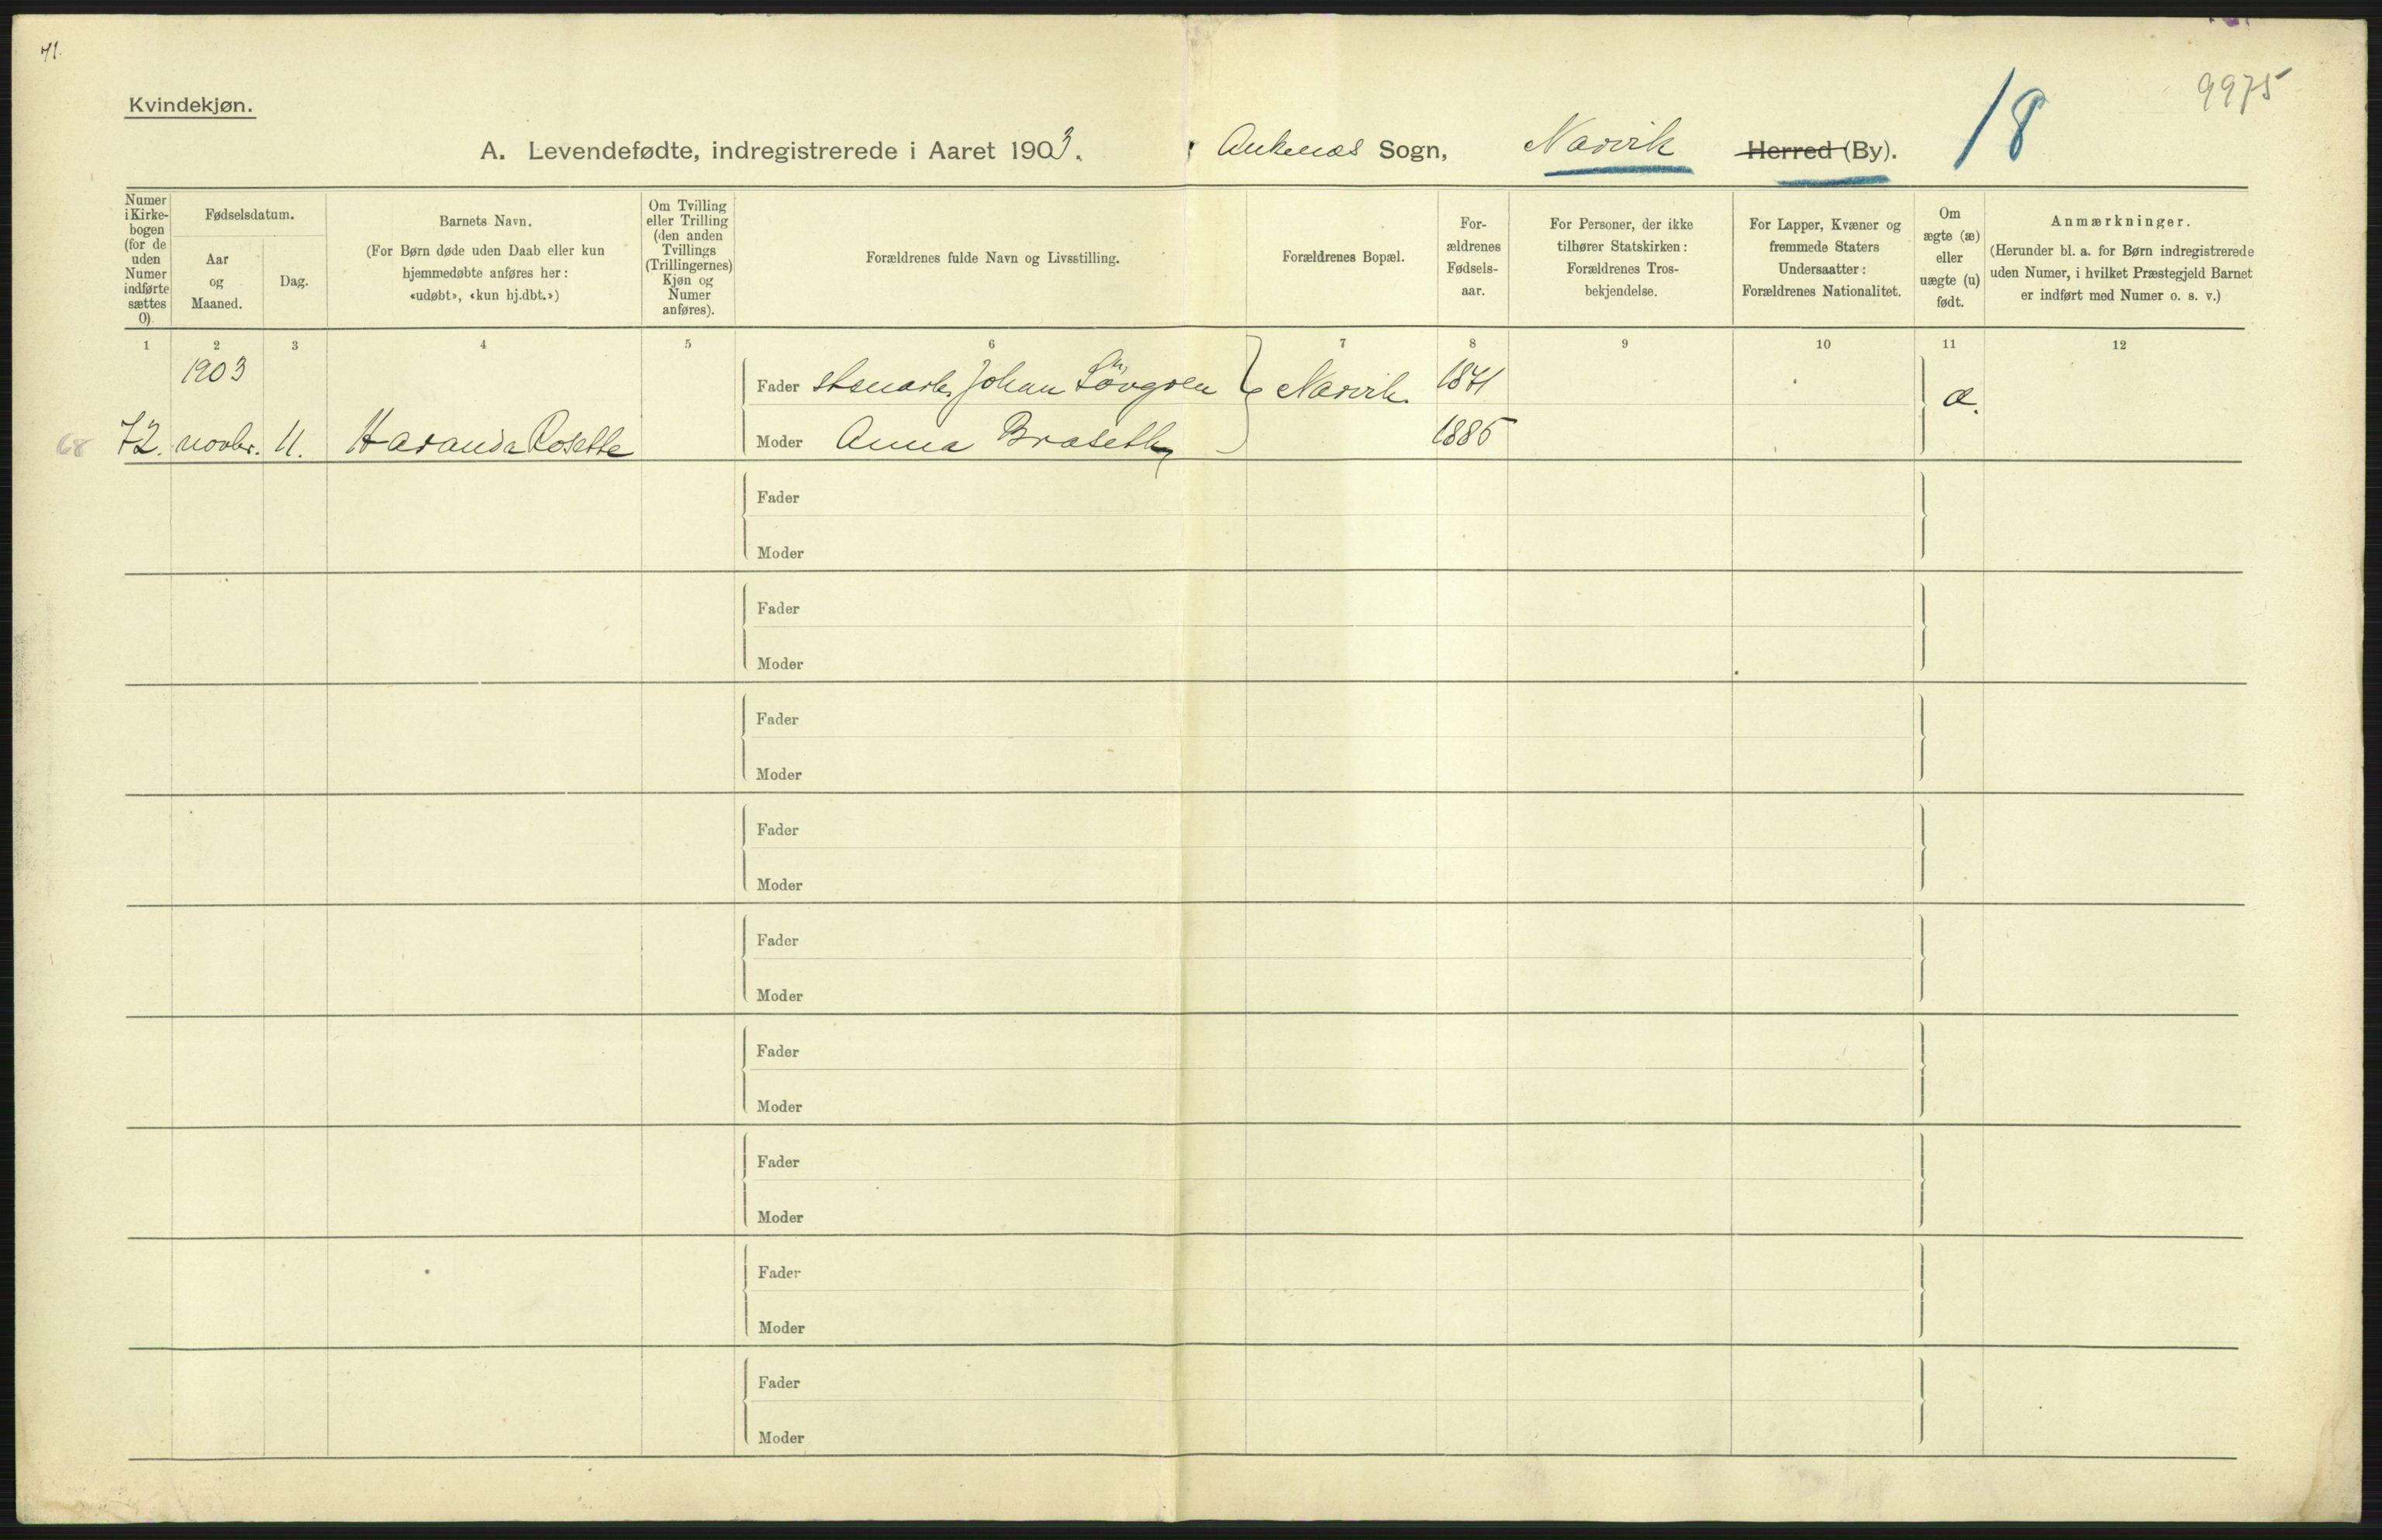 71.
9975
Kvindekjøn.
18
A. Levendefødte, indregistrerede i Aaret 1903. Ankenæs Sogn, Narvik Herred (By).
Numer i Kirke-bogen (for de uden Numer indførte sættes 0).
Fødselsdatum.
Aar og Maaned.
Dag.
Barnets Navn.
(For Børn døde uden Daab eller kun
hjemmedøbte anføres her:
«udøbt», «kun hj.dbt.»)
Om Tvilling
eller Trilling
(den anden
Tvillings
(Trillingernes)
Kjøn og
Numer
anføres).
Forældrenes fulde Navn og Livsstilling.
Forældrenes Bopæl.
For-
ældrenes
Fødsels-
aar.
For Personer, der ikke
tilhører Statskirken:
Forældrenes Tros-
bekjendelse.
For Lapper, Kvæner og
fremmede Staters
Undersaatter:
Forældrenes Nationalitet.
Om
ægte (æ)
eller
uægte (u)
født.
Anmærkninger.
(Herunder bl. a. for Børn indregistrerede
uden Numer, i hvilket Præstegjeld Barnet
er indført med Numer o. s. v.)
1 2 3 4 5 6 7 8 9 10 11 12
1903
Fader Johan Lövgren Narvik 1871
æ.
68 72. novbr. 11. Rosette
Moder Anna Braseth 1885
Fader
Moder
Fader
Moder
Fader
Moder
Fader
Moder
Fader
Moder
Fader
Moder
Fader
Moder
Fader
Moder
Fader
Moder